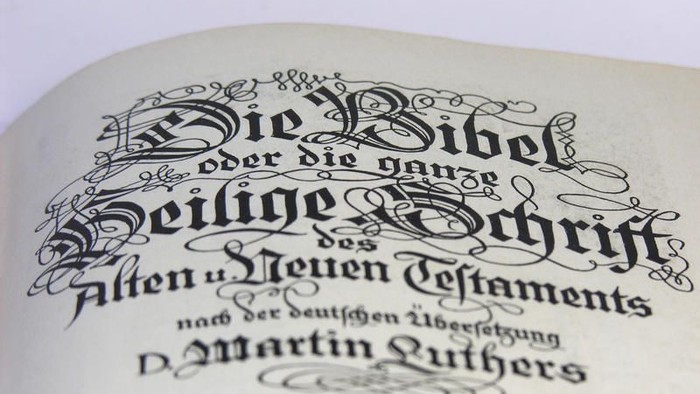 Die Bibel
oder die ganze
Heilige Schrift
des
Alten u Neuen Testaments
nach der deutschen Übersetzung
D. Martin Luthers